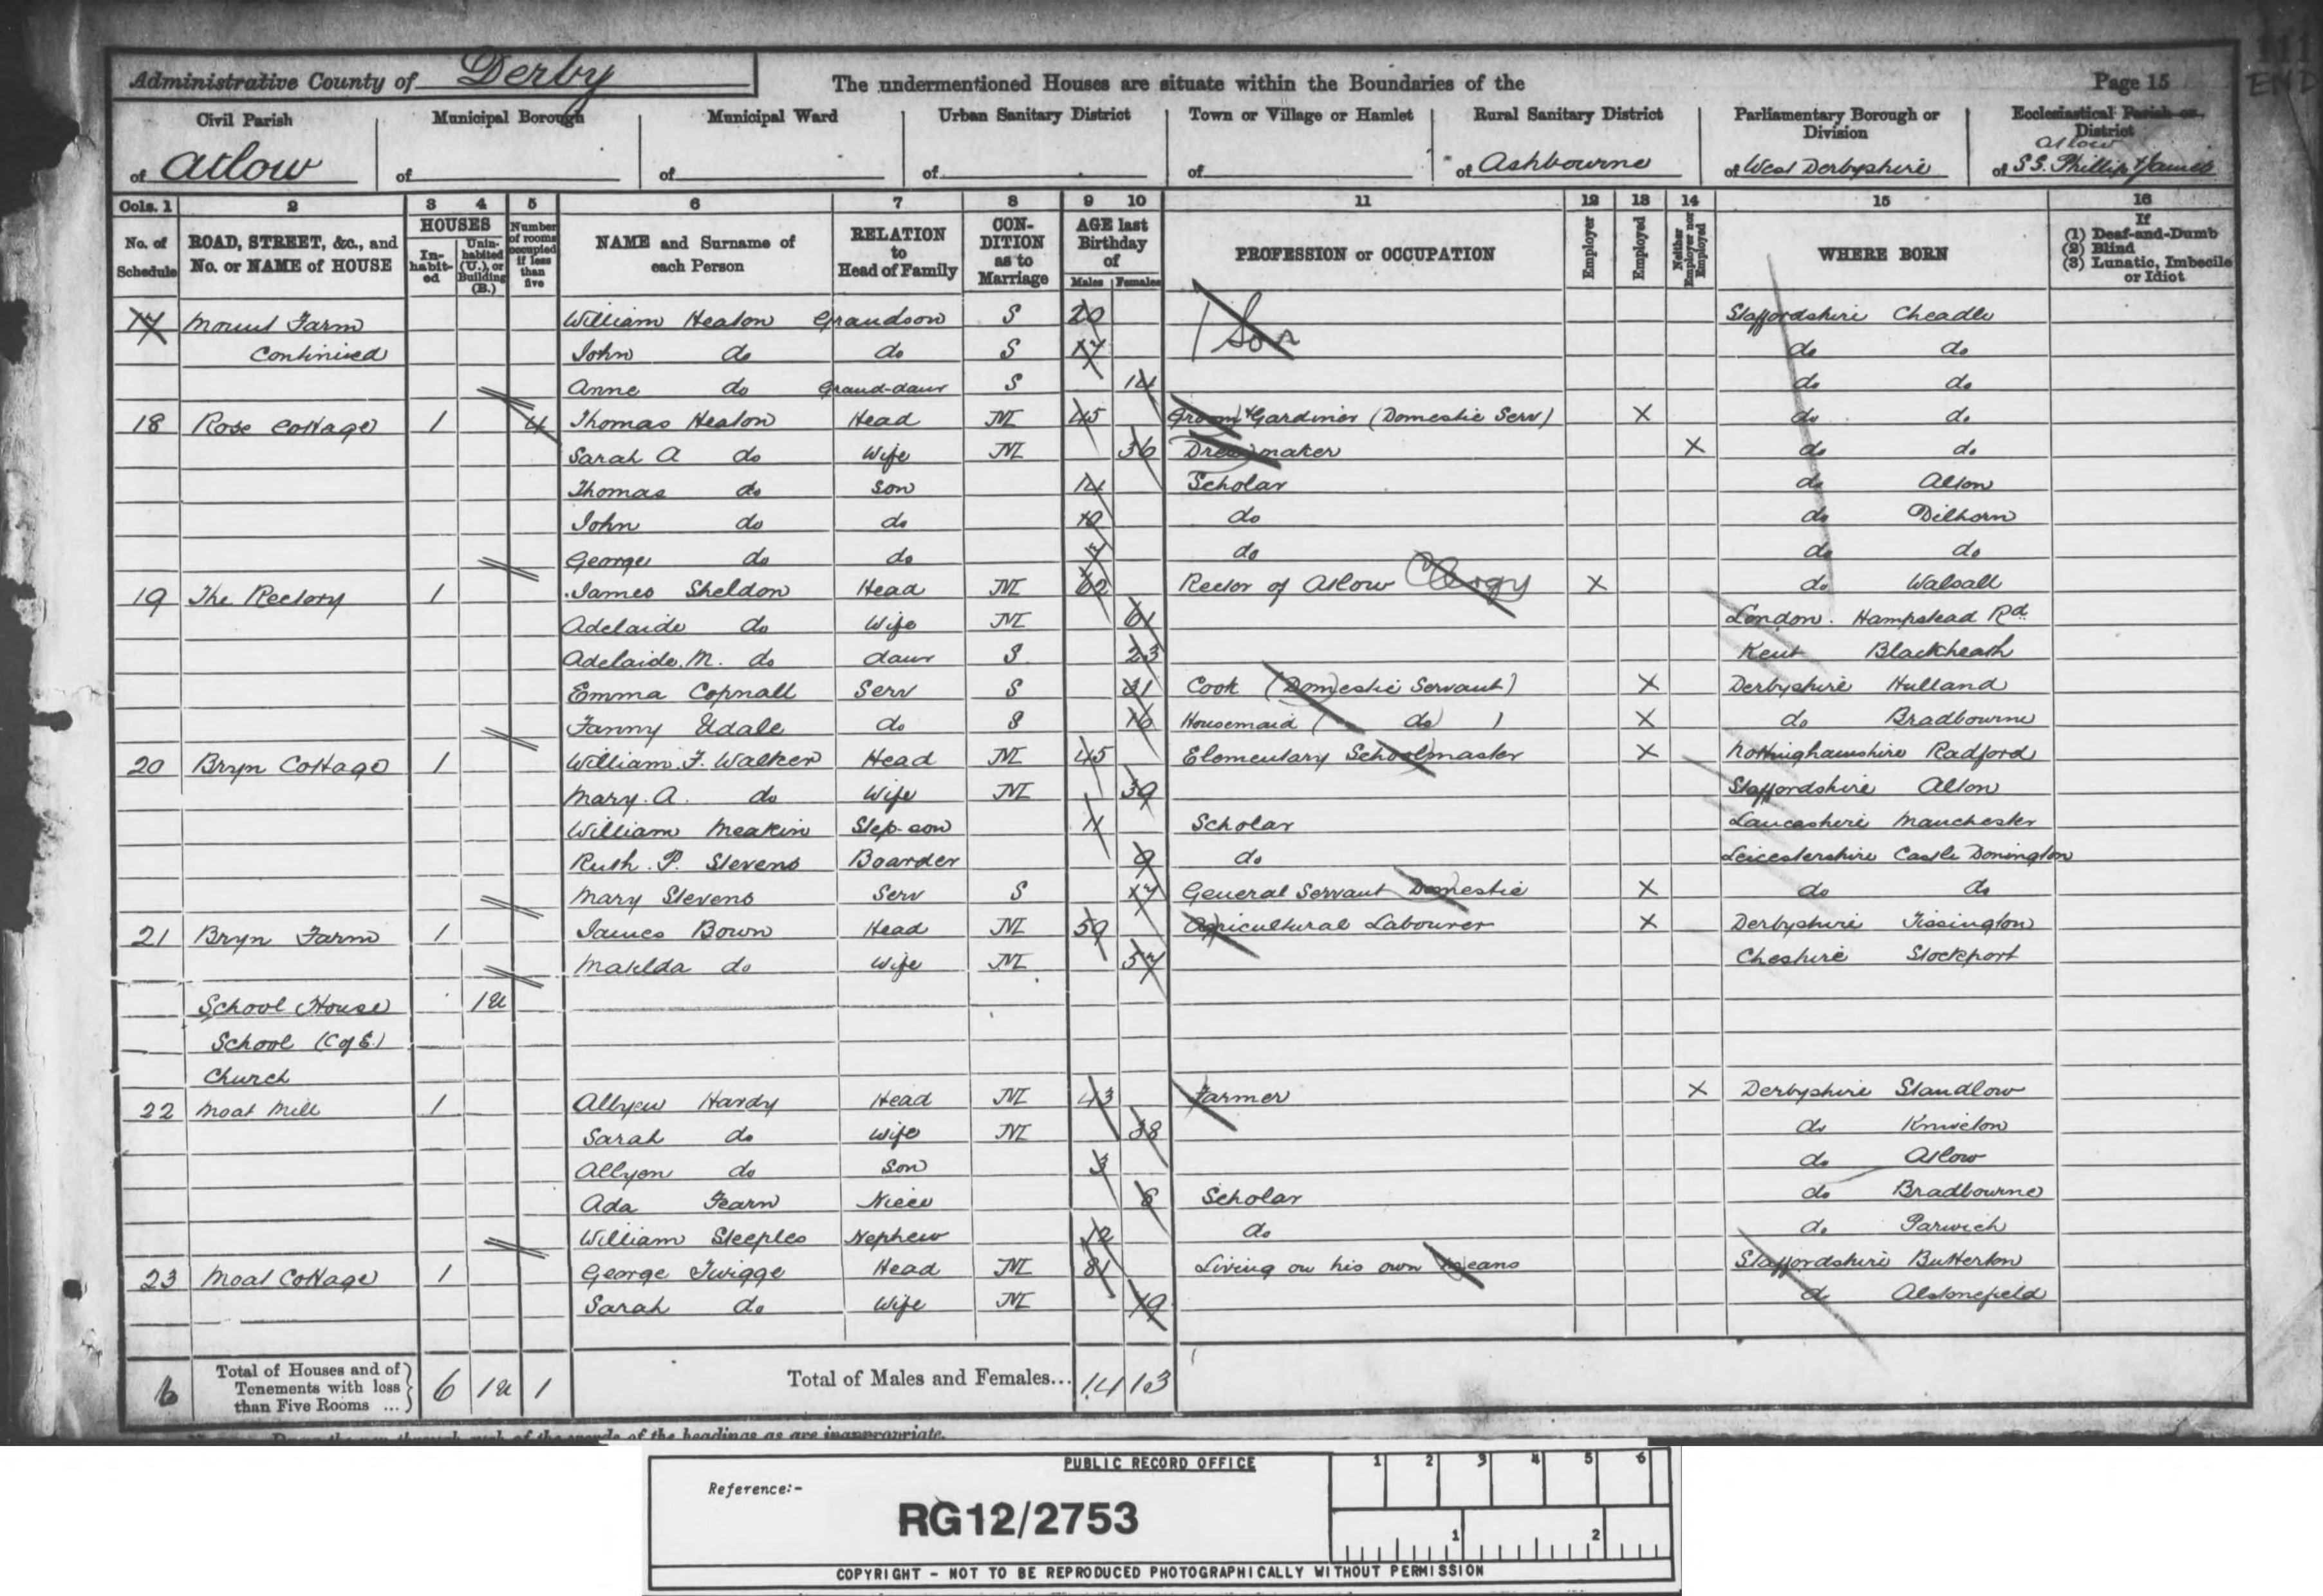 111
END
Administrative County of Derby
The undermentioned Houses are situate within the Boundaries of the
Page 15
Civil Parish of Atlow
Municipal Borough of
Municipal Ward of
Urban Sanitary District of
Town or Village or Hamlet of
Rural Sanitary District of Ashbourne
Parliamentary Borough or Division of West Derbyshire
Ecclesiastical Parish or District of Atlow S.S. Phillip & James
Cols. 1 2 3 4 5 6 7 8 9 10 11 12 13 14 15 16
No. of Schedule
ROAD, STREET, &c., and No. or NAME of HOUSE
HOUSES
Inhabited
Uninhabited (U.), or Building (B.)
Number of rooms occupied if less than five
NAME and Surname of each Person
RELATION to Head of Family
CONDITION as to Marriage
AGE last Birthday of
Males Females
PROFESSION or OCCUPATION
Employer
Employed
Neither Employer nor Employed
WHERE BORN
If
(1) Deaf-and-Dumb
(2) Blind
(3) Lunatic, Imbecile or Idiot
17 Mount Farm William Heaton Grandson S 20 Staffordshire Cheadle
Continued John do do S 17 do do
Anne do Grand-daur S 14 do do
18 Rose Cottage 1 4 Thomas Heaton Head M 45 Groom & Gardiner (Domestic Serv) X do do
Sarah A do Wife M 36 Dressmaker X do do
Thomas do Son 14 Scholar do Alton
John do do 10 do do Dilhorn
George do do 7 do do do
19 The Rectory 1 James Sheldon Head M 62 Rector of Atlow Clergy X do Walsall
Adelaide do Wife M 61 London. Hampstead Rd
Adelaide. M. do daur S 23 Kent Blackheath
Emma Copnall Serv S 31 Cook (Domestic Servant) X Derbyshire Hulland
Fanny Udale do S 16 Housemaid ( do ) X do Bradbourne
20 Bryn Cottage 1 William. F. Walker Head M 45 Elementary Schoolmaster X Nottinghamshire Radford
Mary. A. do Wife M 39 Staffordshire Alton
William Meakin Step-son 11 Scholar Lancashire Manchester
Ruth. P. Stevens Boarder 9 do Leicestershire Castle Donington
Mary Stevens Serv S 17 General Servant Domestic X do do
21 Bryn Farm 1 James Bown Head M 59 Agricultural Labourer X Derbyshire Tissington
Matilda do Wife M 57 Cheshire Stockport
School House 1 U
School (C of E.)
Church
22 Moat Mill 1 Allyew Hardy Head M 43 Farmer X Derbyshire Standlow
Sarah do Wife M 38 do Kniveton
Allyon do Son 3 do Atlow
Ada Fearn Niece 8 Scholar do Bradbourne
William Steeples Nephew 12 do do Parwich
23 Moat Cottage 1 George Twigge Head M 81 Living on his own means Staffordshire Butterton
Sarah do Wife M 79 d Alstonefield
6 Total of Houses and of Tenements with less than Five Rooms ... 6 1 U 1 Total of Males and Females... 14 13
PUBLIC RECORD OFFICE
1 2 3 4 5 6
Reference:-
RG12/2753
1 2
COPYRIGHT - NOT TO BE REPRODUCED PHOTOGRAPHICALLY WITHOUT PERMISSION